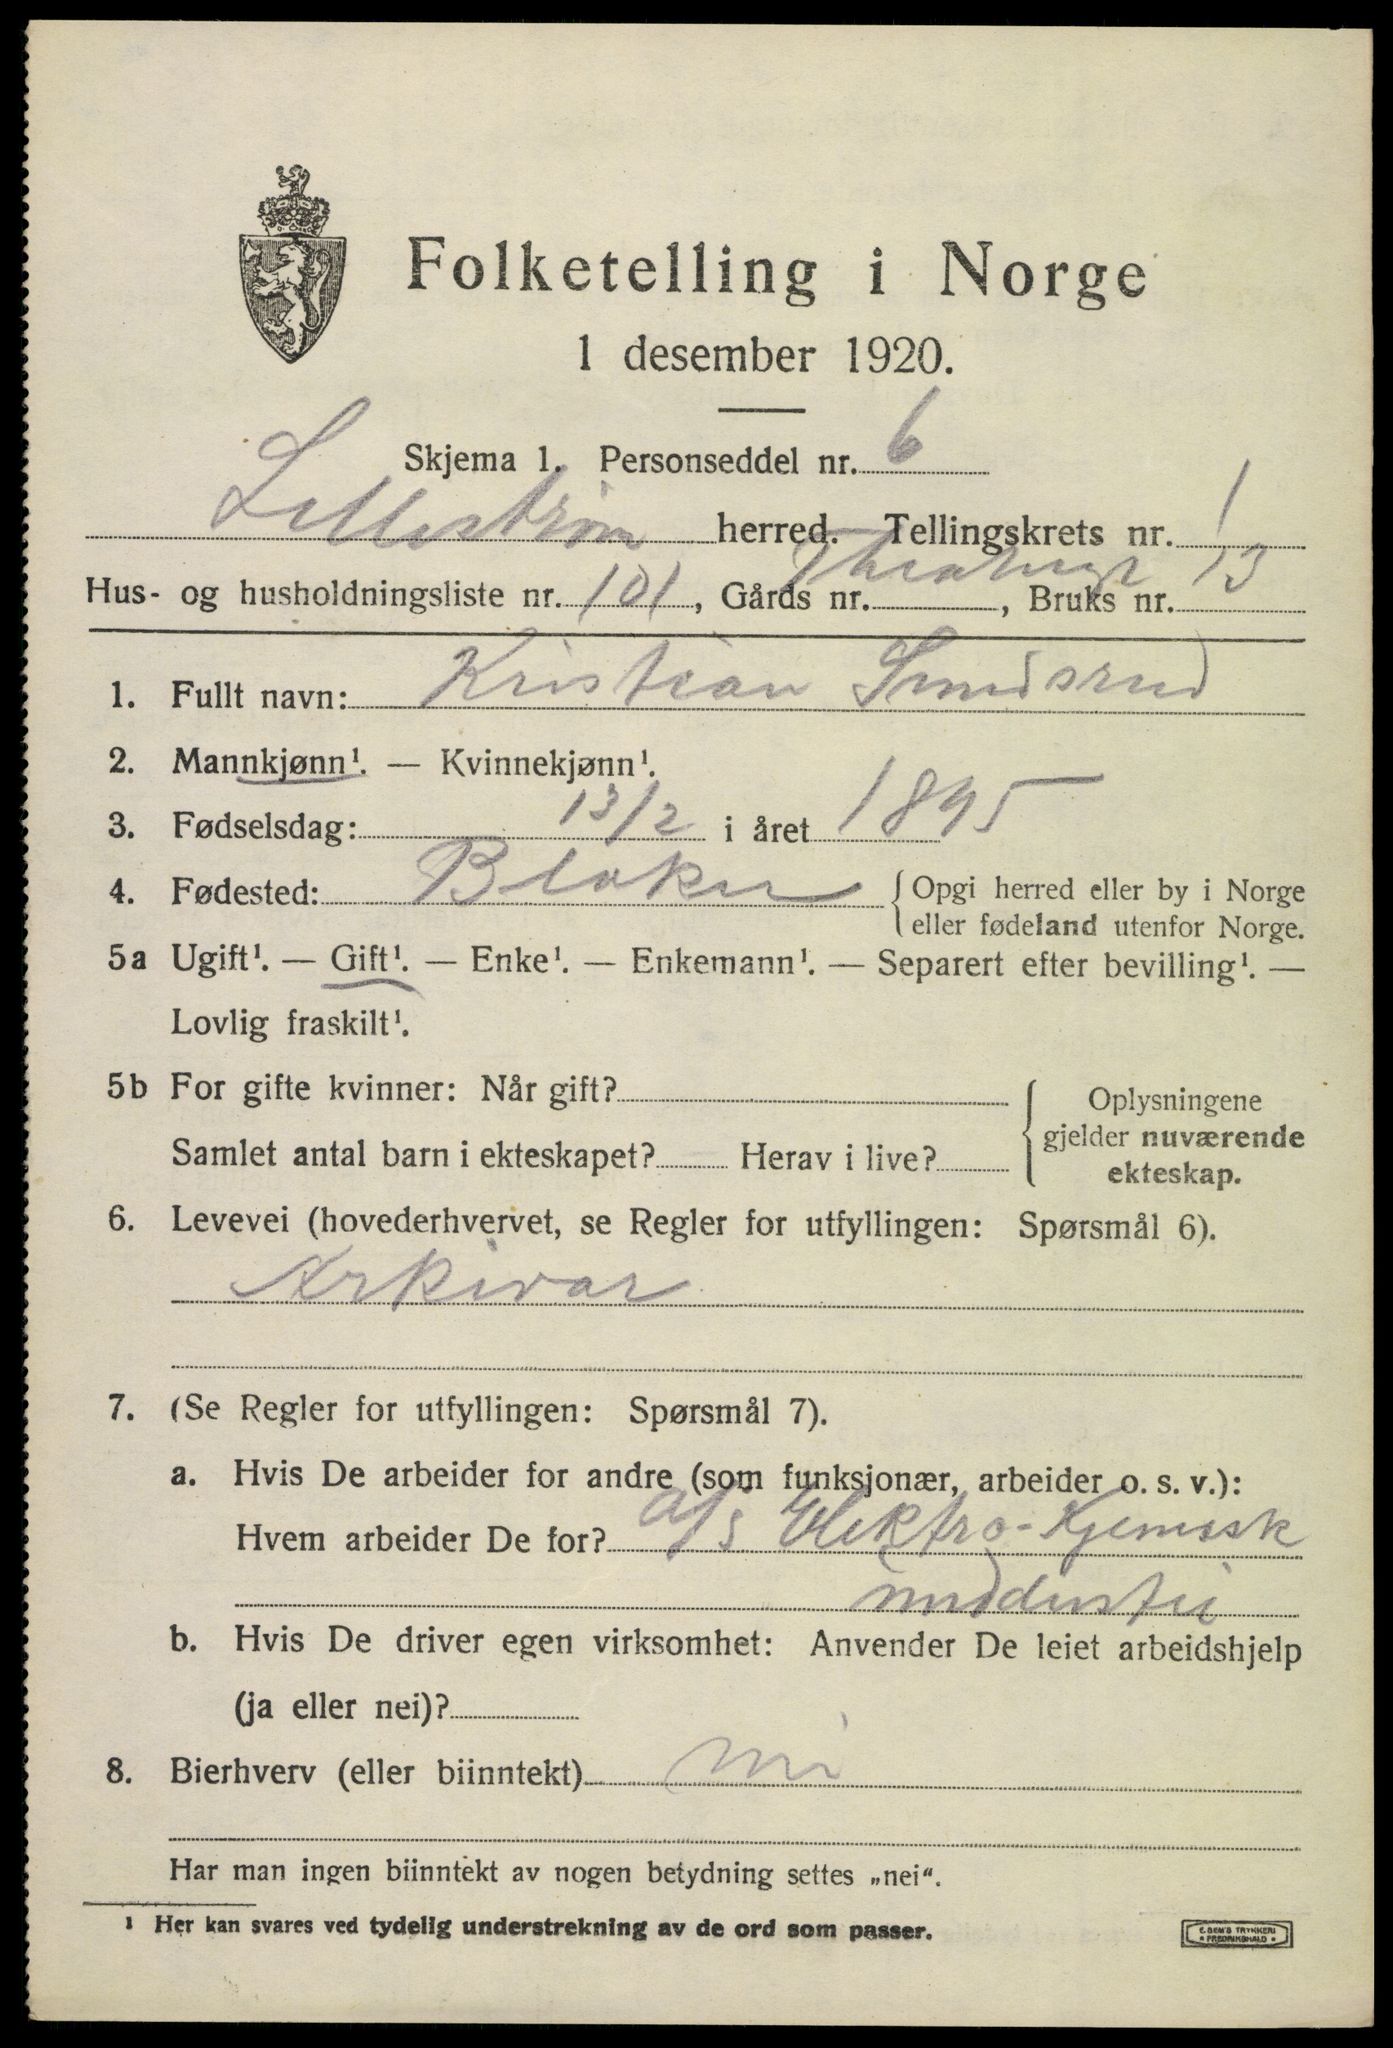 Folketelling i Norge
1 desember 1920.
Skjema 1. Personseddel nr. 6
Lillestrøm herred. Tellingskrets nr. 1
Theatergt 13
Hus- og husholdningsliste nr. 101, Gårds nr. , Bruks nr.
1. Fullt navn: Kristian Sundsrud
2. Mannkjønn¹. — Kvinnekjønn¹.
3. Fødselsdag: 13/2 i året 1895
4. Fødested: Blaker { Opgi herred eller by i Norge
eller fødeland utenfor Norge.
5a Ugift¹. — Gift¹. — Enke¹. — Enkemann¹. — Separert efter bevilling¹. —
Lovlig fraskilt¹.
5b For gifte kvinner: Når gift? { Oplysningene
gjelder nuværende
Samlet antal barn i ekteskapet? Herav i live?
ekteskap.
6. Levevei (hovederhvervet, se Regler for utfyllingen: Spørsmål 6).
Arkivar
7. (Se Regler for utfyllingen: Spørsmål 7).
a. Hvis De arbeider for andre (som funksjonær, arbeider o. s. v.):
Hvem arbeider De for? A/S Elektro-Kjemisk
inddustri
b. Hvis De driver egen virksomhet: Anvender De leiet arbeidshjelp
(ja eller nei)?
8. Bierhverv (eller biinntekt) nei
Har man ingen biinntekt av nogen betydning settes „nei“.
¹ Her kan svares ved tydelig understrekning av de ord som passer.
E. SEM'S TRYKKERI
* FREDRIKSHALD *